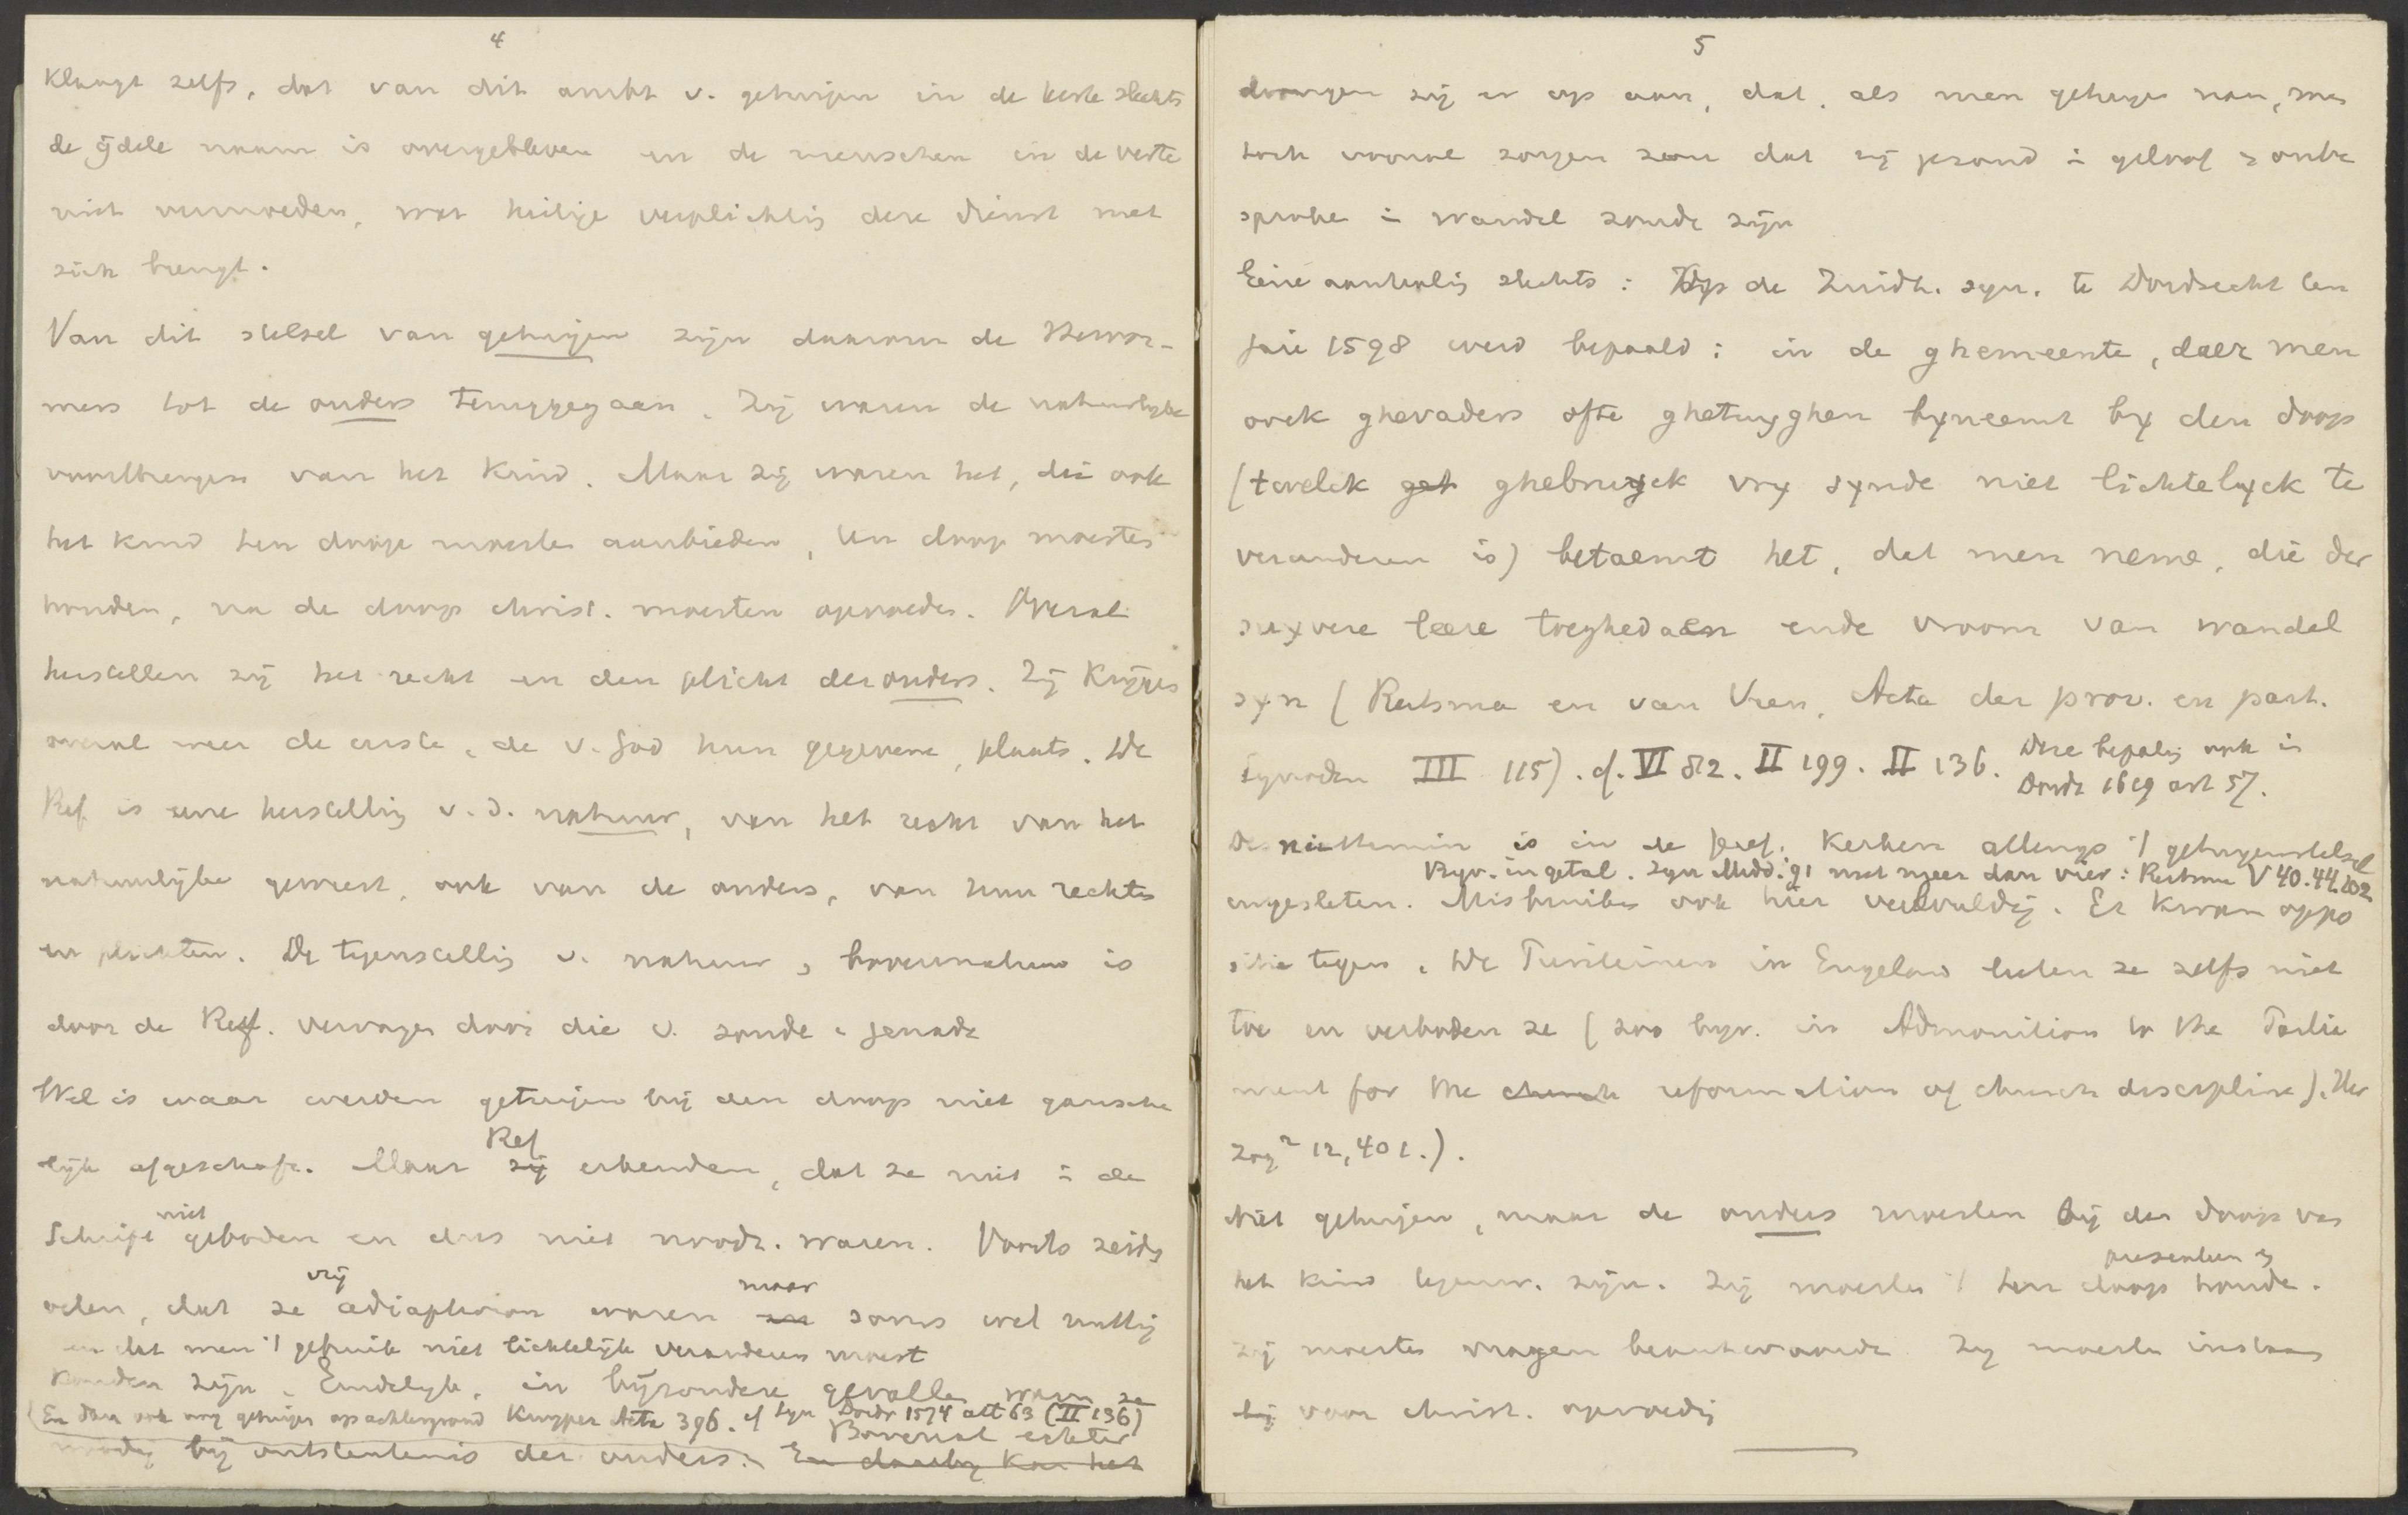 4
klaagt zelfs, dat van dit ambt v. getuigen in de kerk slechts
de ijdele naam is overgebleven en de menschen in de verte
niet vermoeden, wat heilige verplichtig deze dienst met
zich brengt.
Van dit stelsel van getuigen zijn daarom de Hervor-
mers tot de ouders teruggegaan. Zij waren de natuurlijke
voortbrengers van het kind. Maar zij waren het, die ook
het kind ten doope moesten aanbieden, ten doop moesten
houden, na de doop christ. moesten opvoeden. Overal
herstellen zij het recht en den plicht der ouders. Zij krijgen
overal weer de eerste, de v. God hun gegevene, plaats. De
Ref. is eene herstellig v. d. natuur, van het recht van het
natuurlijke geweest, ook van de ouders, van hun rechten
en plichten. De tegenstellig v. natuur en bovennatuur is
door de Ref. vervangen door die v. zonde en genade
Wel is waar werden getuigen bij den doop niet gansche
lijk afgeschaft. Maar zij Ref erkenden, dat ze niet in de
Schrift niet geboden en dus niet noodz. waren. Voorts zeide
velen, dat ze vrij adiaphoron waren en maar soms wel nuttig
en dat men 't gebruik niet lichtelijk veranderen moest
konden zijn. Eindelijk, in bijzondere gevallen waren ze
(En dan ook nog getuigen op achtergrond Kuyper Acta 396. cf Syn Dordr 1574 art 63 (II 136)
noodig bij ontstentenis der ouders. Bovenal echter En daarbij kon het
5
drongen zij er op aan, dat, als men getuigen nam, men
toch vooral zorgen zou dat zij gezond in geloof en onbe
sproken in wandel zoude zijn
Eene aanhalig slechts: Op de Zuidh. syn. te Dordrecht ten
jare 1598 werd bepaald: in de ghemeente, daer men
oock ghevaders ofte ghetuyghen byneemt by den doop
(twelck get ghebruyck vry synde niet lichtelyck te
veranderen is) betaemt het, dat men neme, die der
suyvere leere toeghedaen ende vroom van wandel
syn (Reitsma en van Veen, Acta der prov. en part.
Synoden III 115). cf. VI 82. II 199. II 136. Deze bepalig ook in
Dordr 1619 art 57.
Des niettemin is in de Geref. kerken allengs 't getuigenstelsel
Bijv. in getal. Syn Midd. '91 niet meer dan vier: Reitsma V 40.44.202
ingesleten. Misbruiken ook hier veelvuldig. Er kwam oppo
sitie tegen. De Puriteinen in Engeland lieten ze zelfs niet
toe en verboden ze (zoo bijv. in Admonition to the Parlia
ment for the church reformation of church discipline). Her
zog² 12, 401.).
Niet getuigen, maar de ouders moesten bij den doop van
het kind tegenw. zijn. Zij moesten 't presenteeren en ten doop houde.
Zij moesten vragen beantwoorde. Zij moesten instaan
bij voor christ. opvoedig